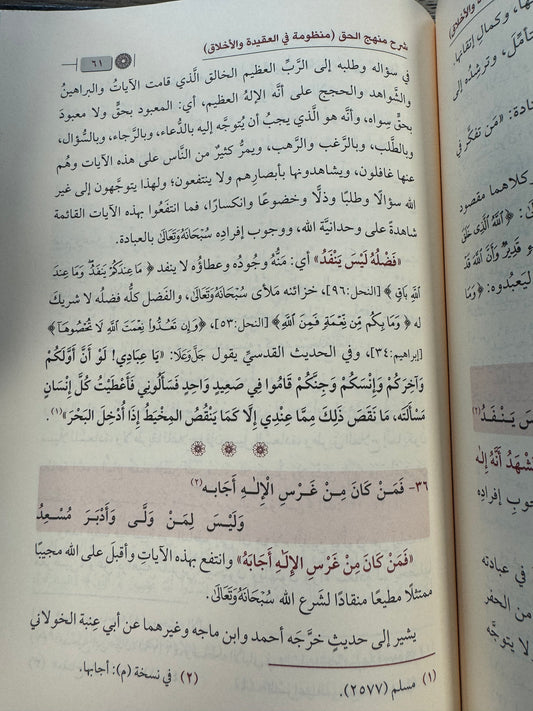 شرح منهج الحق (منظومة في العقيدة والأخلاق)
٦١
في سؤاله وطلبه إلى الرَّبِّ العظيم الخالق الَّذي قامت الآياتُ والبراهينُ
والشَّواهد والحجج على أنَّه الإلهُ العظيم، أي: المعبود بحقٍّ ولا معبودَ
بحقٍّ سِواه، وأنَّه هو الَّذي يجبُ أن يُتوجَّه إليه بالدُّعاء، وبالرَّجاء، وبالسُّؤال،
وبالطَّلب، وبالرَّغب والرَّهب، ويمرُّ كثيرٌ من النَّاس على هذه الآيات وهُم
عنها غافلون، ويشاهدونها بأبصارهم ولا ينتفعون؛ ولهذا يتوجَّهون إلى غير
الله سؤالًا وطلبًا وذلًّا وخضوعًا وانكسارًا، فما انتفعُوا بهذه الآيات القائمة
شاهدةً على وحدانيَّة الله، ووجوب إفرادِه سُبْحَانَهُ وَتَعَالَى بالعبادة.
«فَضْلُهُ لَيْسَ يَنْفَدُ» أي: مَنُّهُ وجُودُه وعطاؤُه لا ينفد ﴿مَا عِندَكُمْ يَنفَدُ وَمَا عِندَ
اللَّهِ بَاقٍ﴾ [النحل:٩٦]، خزائنه مَلأى سُبْحَانَهُ وَتَعَالَى، والفَضل كلُّه فضلُه لا شريكَ
له ﴿وَمَا بِكُم مِّن نِّعْمَةٍ فَمِنَ اللَّهِ﴾ [النحل:٥٣]، ﴿وَإِن تَعُدُّوا نِعْمَتَ اللَّهِ لَا تُحْصُوهَا﴾
[إبراهيم:٣٤]، وفي الحديث القدسيِّ يقول جَلَّ وَعَلَا: «يَا عِبَادِي! لَوْ أَنَّ أَوَّلَكُمْ
وَآخِرَكُمْ وَإِنْسَكُمْ وَجِنَّكُمْ قَامُوا فِي صَعِيدٍ وَاحِدٍ فَسَأَلُونِي فَأَعْطَيْتُ كُلَّ إِنْسَانٍ
مَسْأَلَتَه، مَا نَقَصَ ذَلِكَ مِمَّا عِنْدِي إِلَّا كَمَا يَنْقُصُ المِخْيَطُ إِذَا أُدْخِلَ البَحْرَ»(١).
٣٦- فَمَنْ كَانَ مِنْ غَرْسِ الْإِلَـٰهِ أَجَابَـه (٢)
وَلَيْسَ لِمَنْ وَلَّى وَأَدْبَرَ مُسْعِدُ
«فَمَنْ كَانَ مِنْ غَرْسِ الإِلَـٰهِ أَجَابَهُ» وانتفع بهذه الآياتِ وأقبلَ على الله مجيبًا
ممتثلًا مطيعًا منقادًا لشَرع الله سُبْحَانَهُ وَتَعَالَى.
يشير إلى حديثٍ خرَّجَه أحمد وابن ماجه وغيرهما عن أبي عِنبة الخولاني
(١) مسلم (٢٥٧٧).
(٢) في نسخة (م): أجابها.